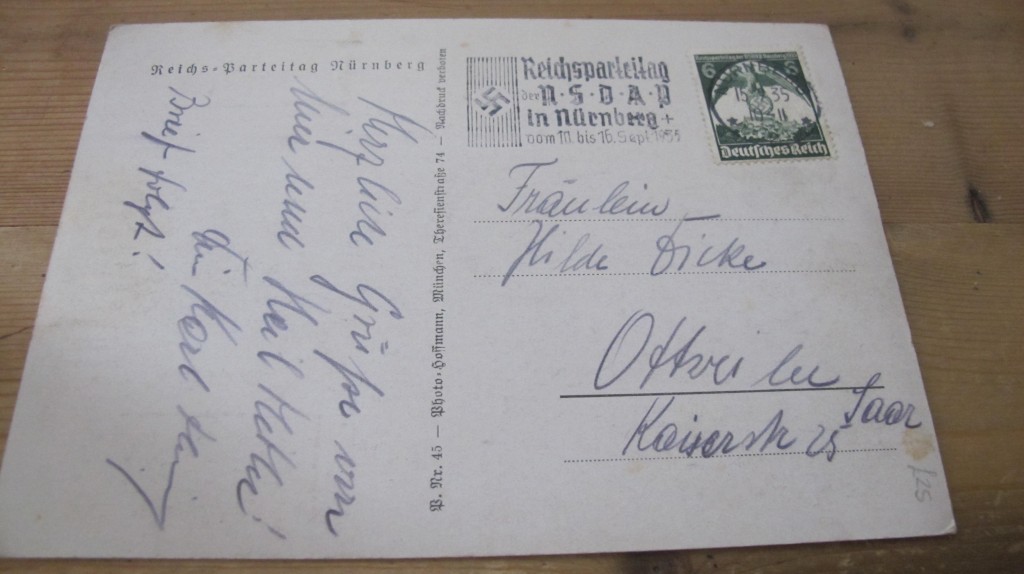 Reichs-Parteitag Nürnberg
Herzliche Grüße vom
Heil
Brief folgt!
P. Nr. 45 — Photo-Hoffmann, München, Theresienstraße 74 — Nachdruck verboten
Reichsparteitag
der N·S·D·A·P
in Nürnberg +
vom 10. bis 16. Sept. 1935
6 6
Deutsches Reich
Fräulein
Hilde Dicke
Ottweiler
Saar
Kaiserstr 25
/25